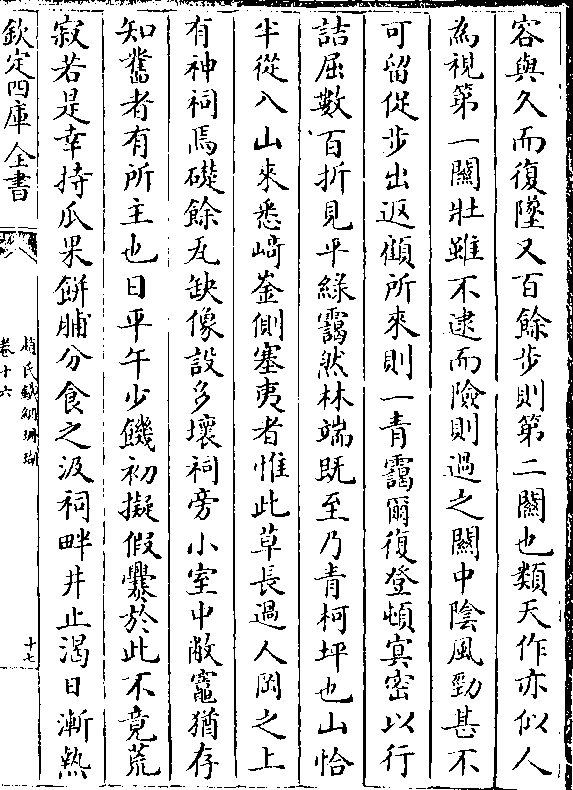 容與久而復墜又百餘步則第二關也類天作亦似人
為視第一關壯雖不逮而險則過之關中陰風勁甚不
可留促步出返顧所來則一青靄爾復登頓寘密以行
詰屈數百折見平綠靄然林端既至乃青柯坪也山恰
半從入山來悉﨑崟側塞夷者惟此草長過人岡之上
有神祠焉礎餘瓦缺像設多壞祠旁小室中敝竈猶存
知舊者有所主也日平午少饑初擬假爨於此不竟荒
寂若是幸持瓜果餅脯分食之汲祠畔井止渴日漸熱
欽定四庫全書
趙氏鐵網珊瑚
卷十六
十七